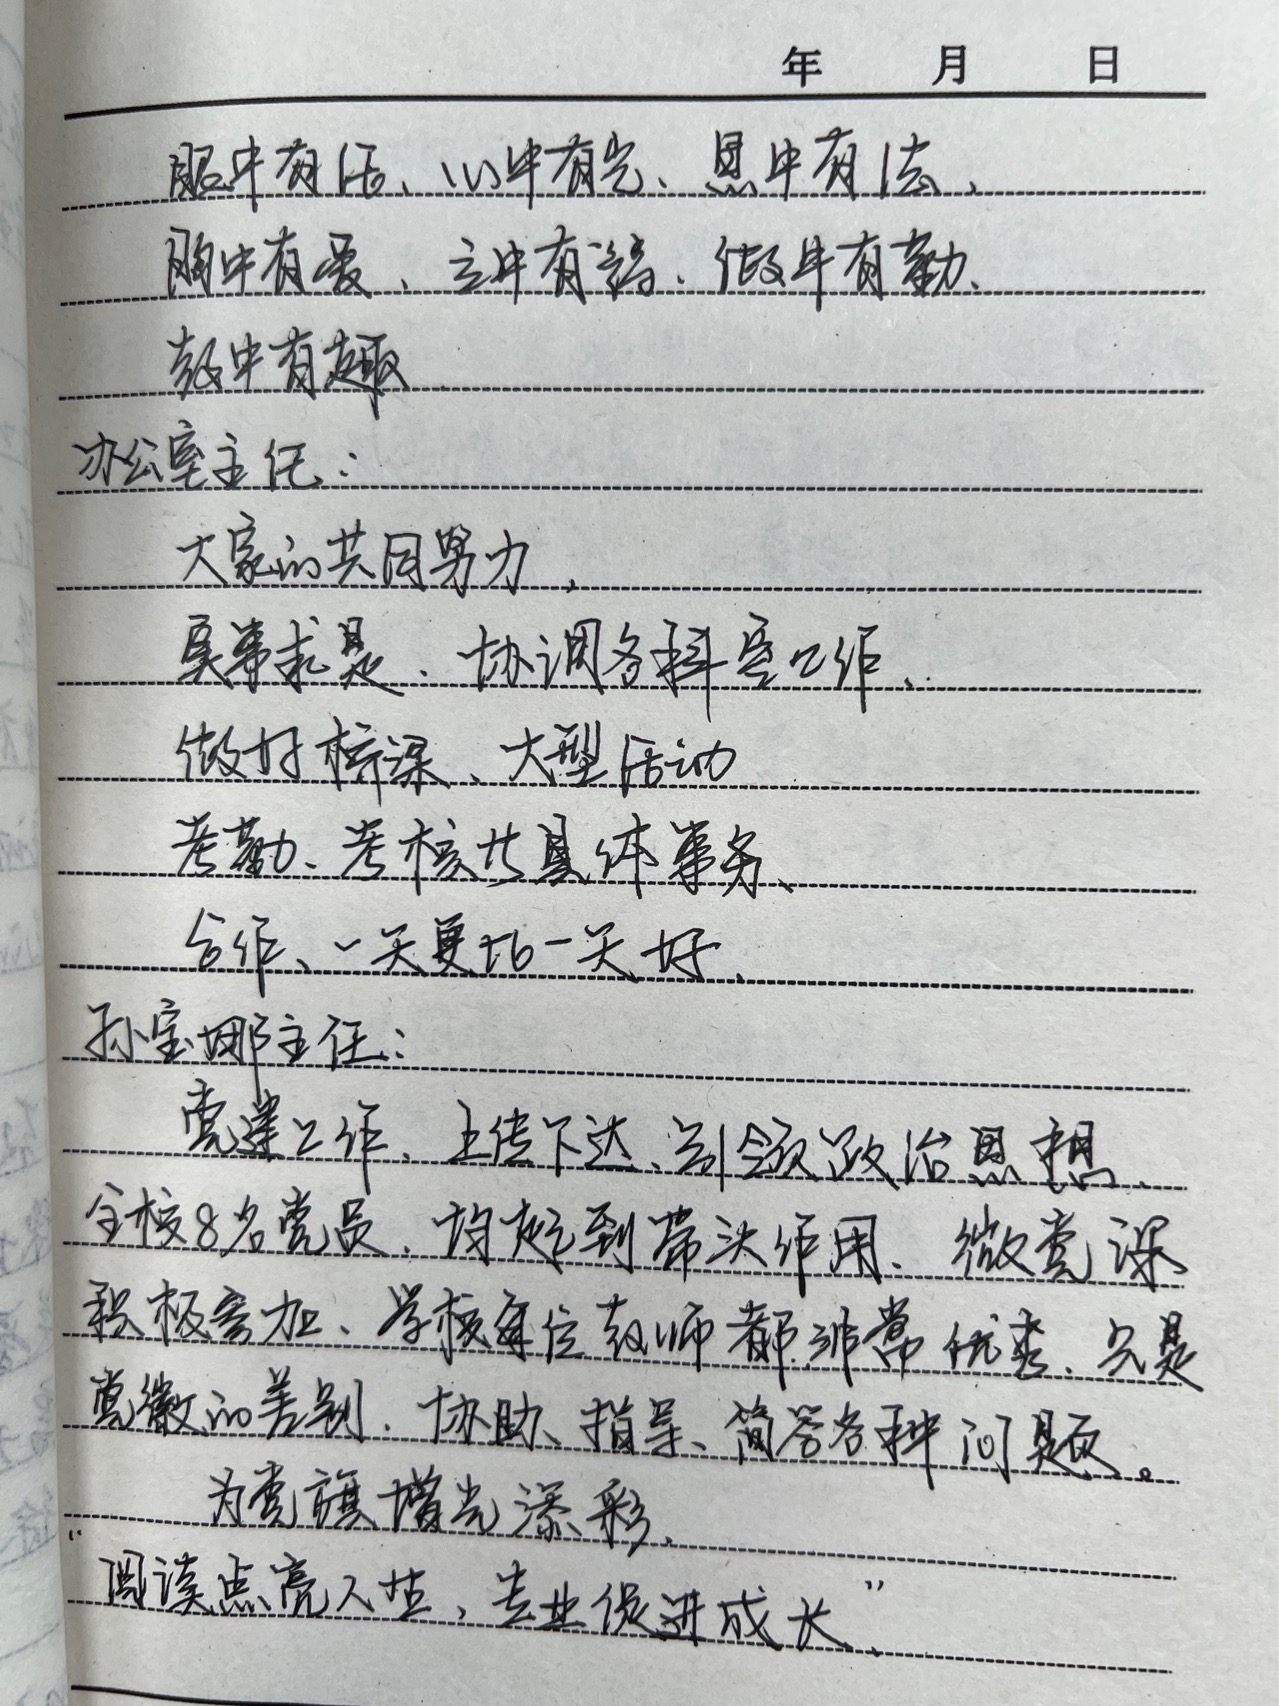 年 月 日
眼中有活、心中有光、思中有法、
胸中有爱、言中有语、做中有勤、
教中有趣
办公室主任：
大家的共同努力、
实事求是、协调各科室工作、
做好桥梁、大型活动
考勤、考核共具体事务、
合作、一天更比一天好、
孙宝娜主任：
党建工作、上传下达、引领政治思想、
全校8名党员、均起到带头作用、微党课
积极参加、学校每位教师都非常优秀、只是
党徽的差别、协助、指导、简答各种问题。
为党旗增光添彩、
“阅读点亮人生，专业促进成长”、